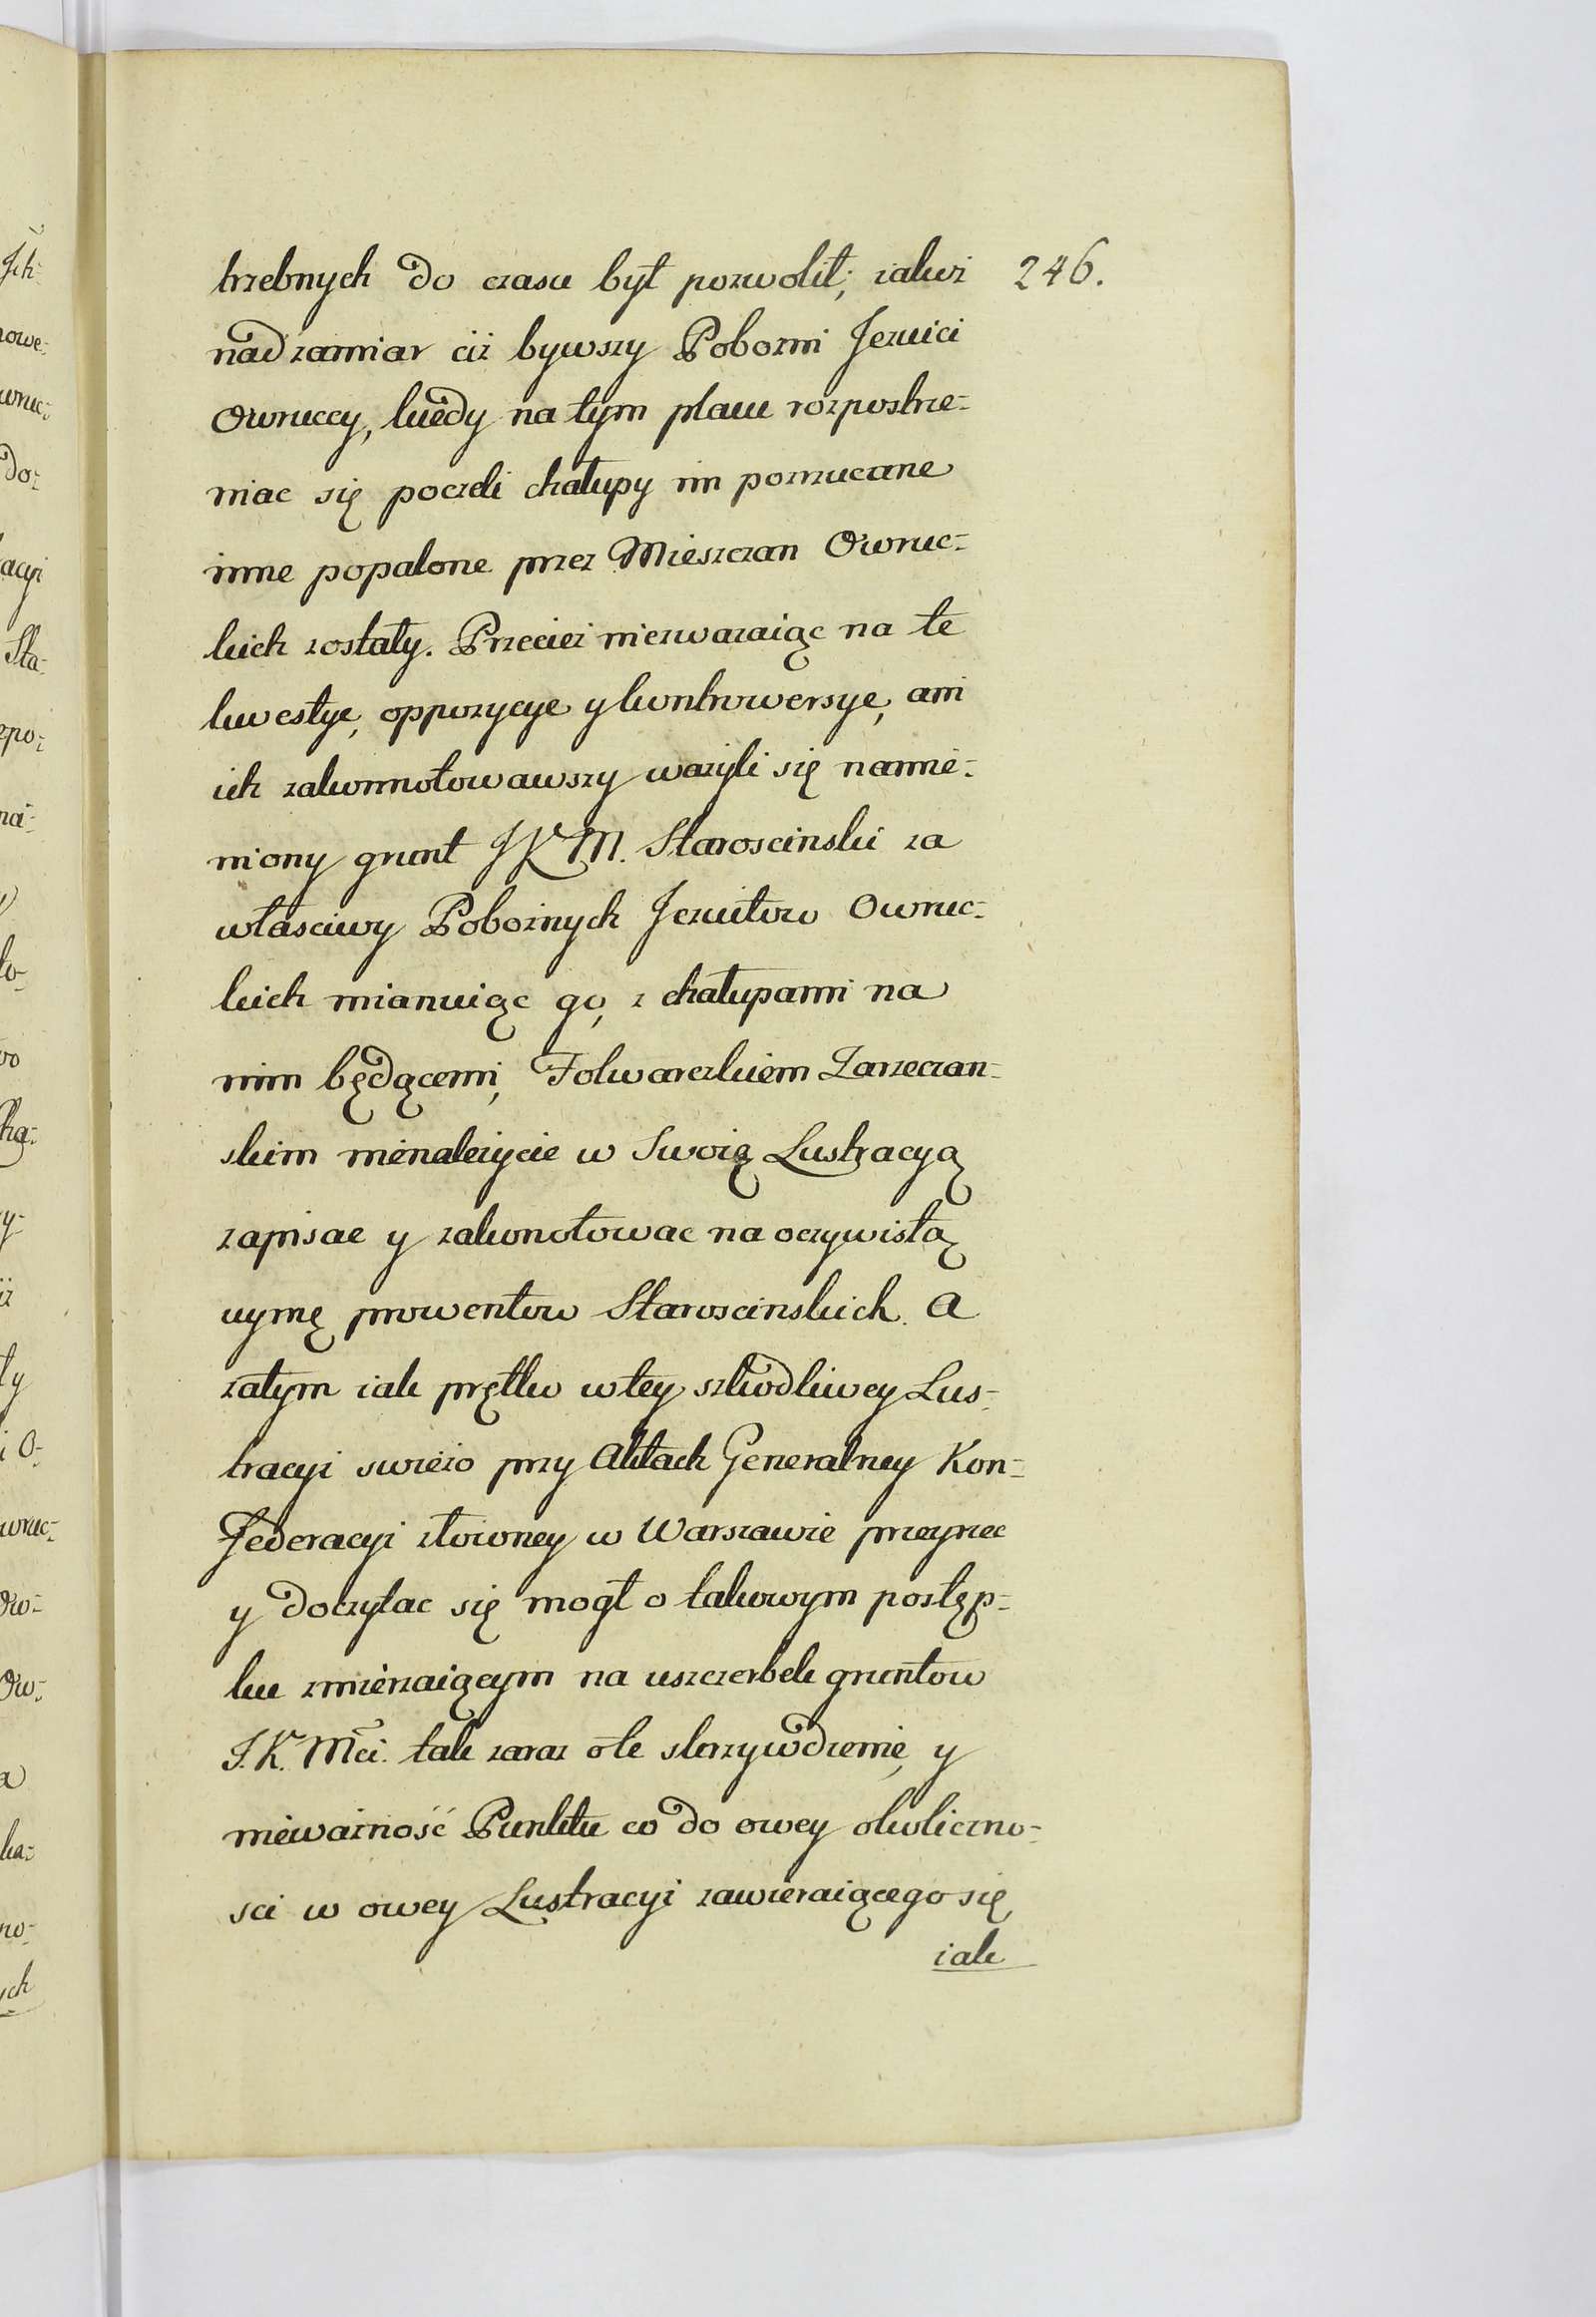 trzebnych do czasu był pozwolił; iakoż 246.
nad zamiar ciż bywszy Pobozni Jezuici
Owruccy, kiedy na tym placu rozpostrze-
niac się poczeli chałupy im porozrucane
inne popalone przez Mieszczan Owruc-
kich zostały. Przecież niezwazaiąc na te
kwestye, oppozycye y kontrowersye, ani
ich zakonnotowawszy ważyli się namie-
niony grunt J K M. Staroscinski za
własciwy Pobożnych Jezuitow Owruc-
kich mianuiąc go, z chałupami na
nim będącemi, Folwarczkiem Zarzeczan-
skim nienależycie w Swoią Lustracyą
zapisac y zakonotowac na oczywistą
uymę prowentow Staroscinskich. A
zatym iak prętko w tey szkodliwey Lus-
tracyi swieżo przy Aktach Generalney Kon-
federacyi złożoney w Warszawie przeyrzec
y doczytac się mogł o takowym postęp-
ku zmierzaiącym na uszczerbek gruntow
J. K. Mci. tak zaraz o te skrzywdzenie, y
nieważność Punktu co do owey okoliczno-
sci w owey Lustracyi zawieraiącego się
iak